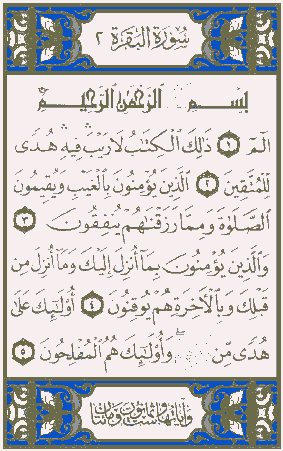 سُورَةُ الْبَقَرَةِ ٢
بِسْمِ الرَّحْمَٰنِ الرَّحِيمِ
الٓمٓ ١ ذَٰلِكَ ٱلْكِتَٰبُ لَا رَيْبَ ۛ فِيهِ ۛ هُدًى
لِّلْمُتَّقِينَ ٢ ٱلَّذِينَ يُؤْمِنُونَ بِٱلْغَيْبِ وَيُقِيمُونَ
ٱلصَّلَوٰةَ وَمِمَّا رَزَقْنَٰهُمْ يُنفِقُونَ ٣
وَٱلَّذِينَ يُؤْمِنُونَ بِمَآ أُنزِلَ إِلَيْكَ وَمَآ أُنزِلَ مِن
قَبْلِكَ وَبِٱلْءَاخِرَةِ هُمْ يُوقِنُونَ ٤ أُو۟لَٰٓئِكَ عَلَىٰ
هُدًى مِّن ۖ وَأُو۟لَٰٓئِكَ هُمُ ٱلْمُفْلِحُونَ ٥
وَآيَاتُهَا سِتٌّ وَثَمَانُونَ وَمِائَتَانِ